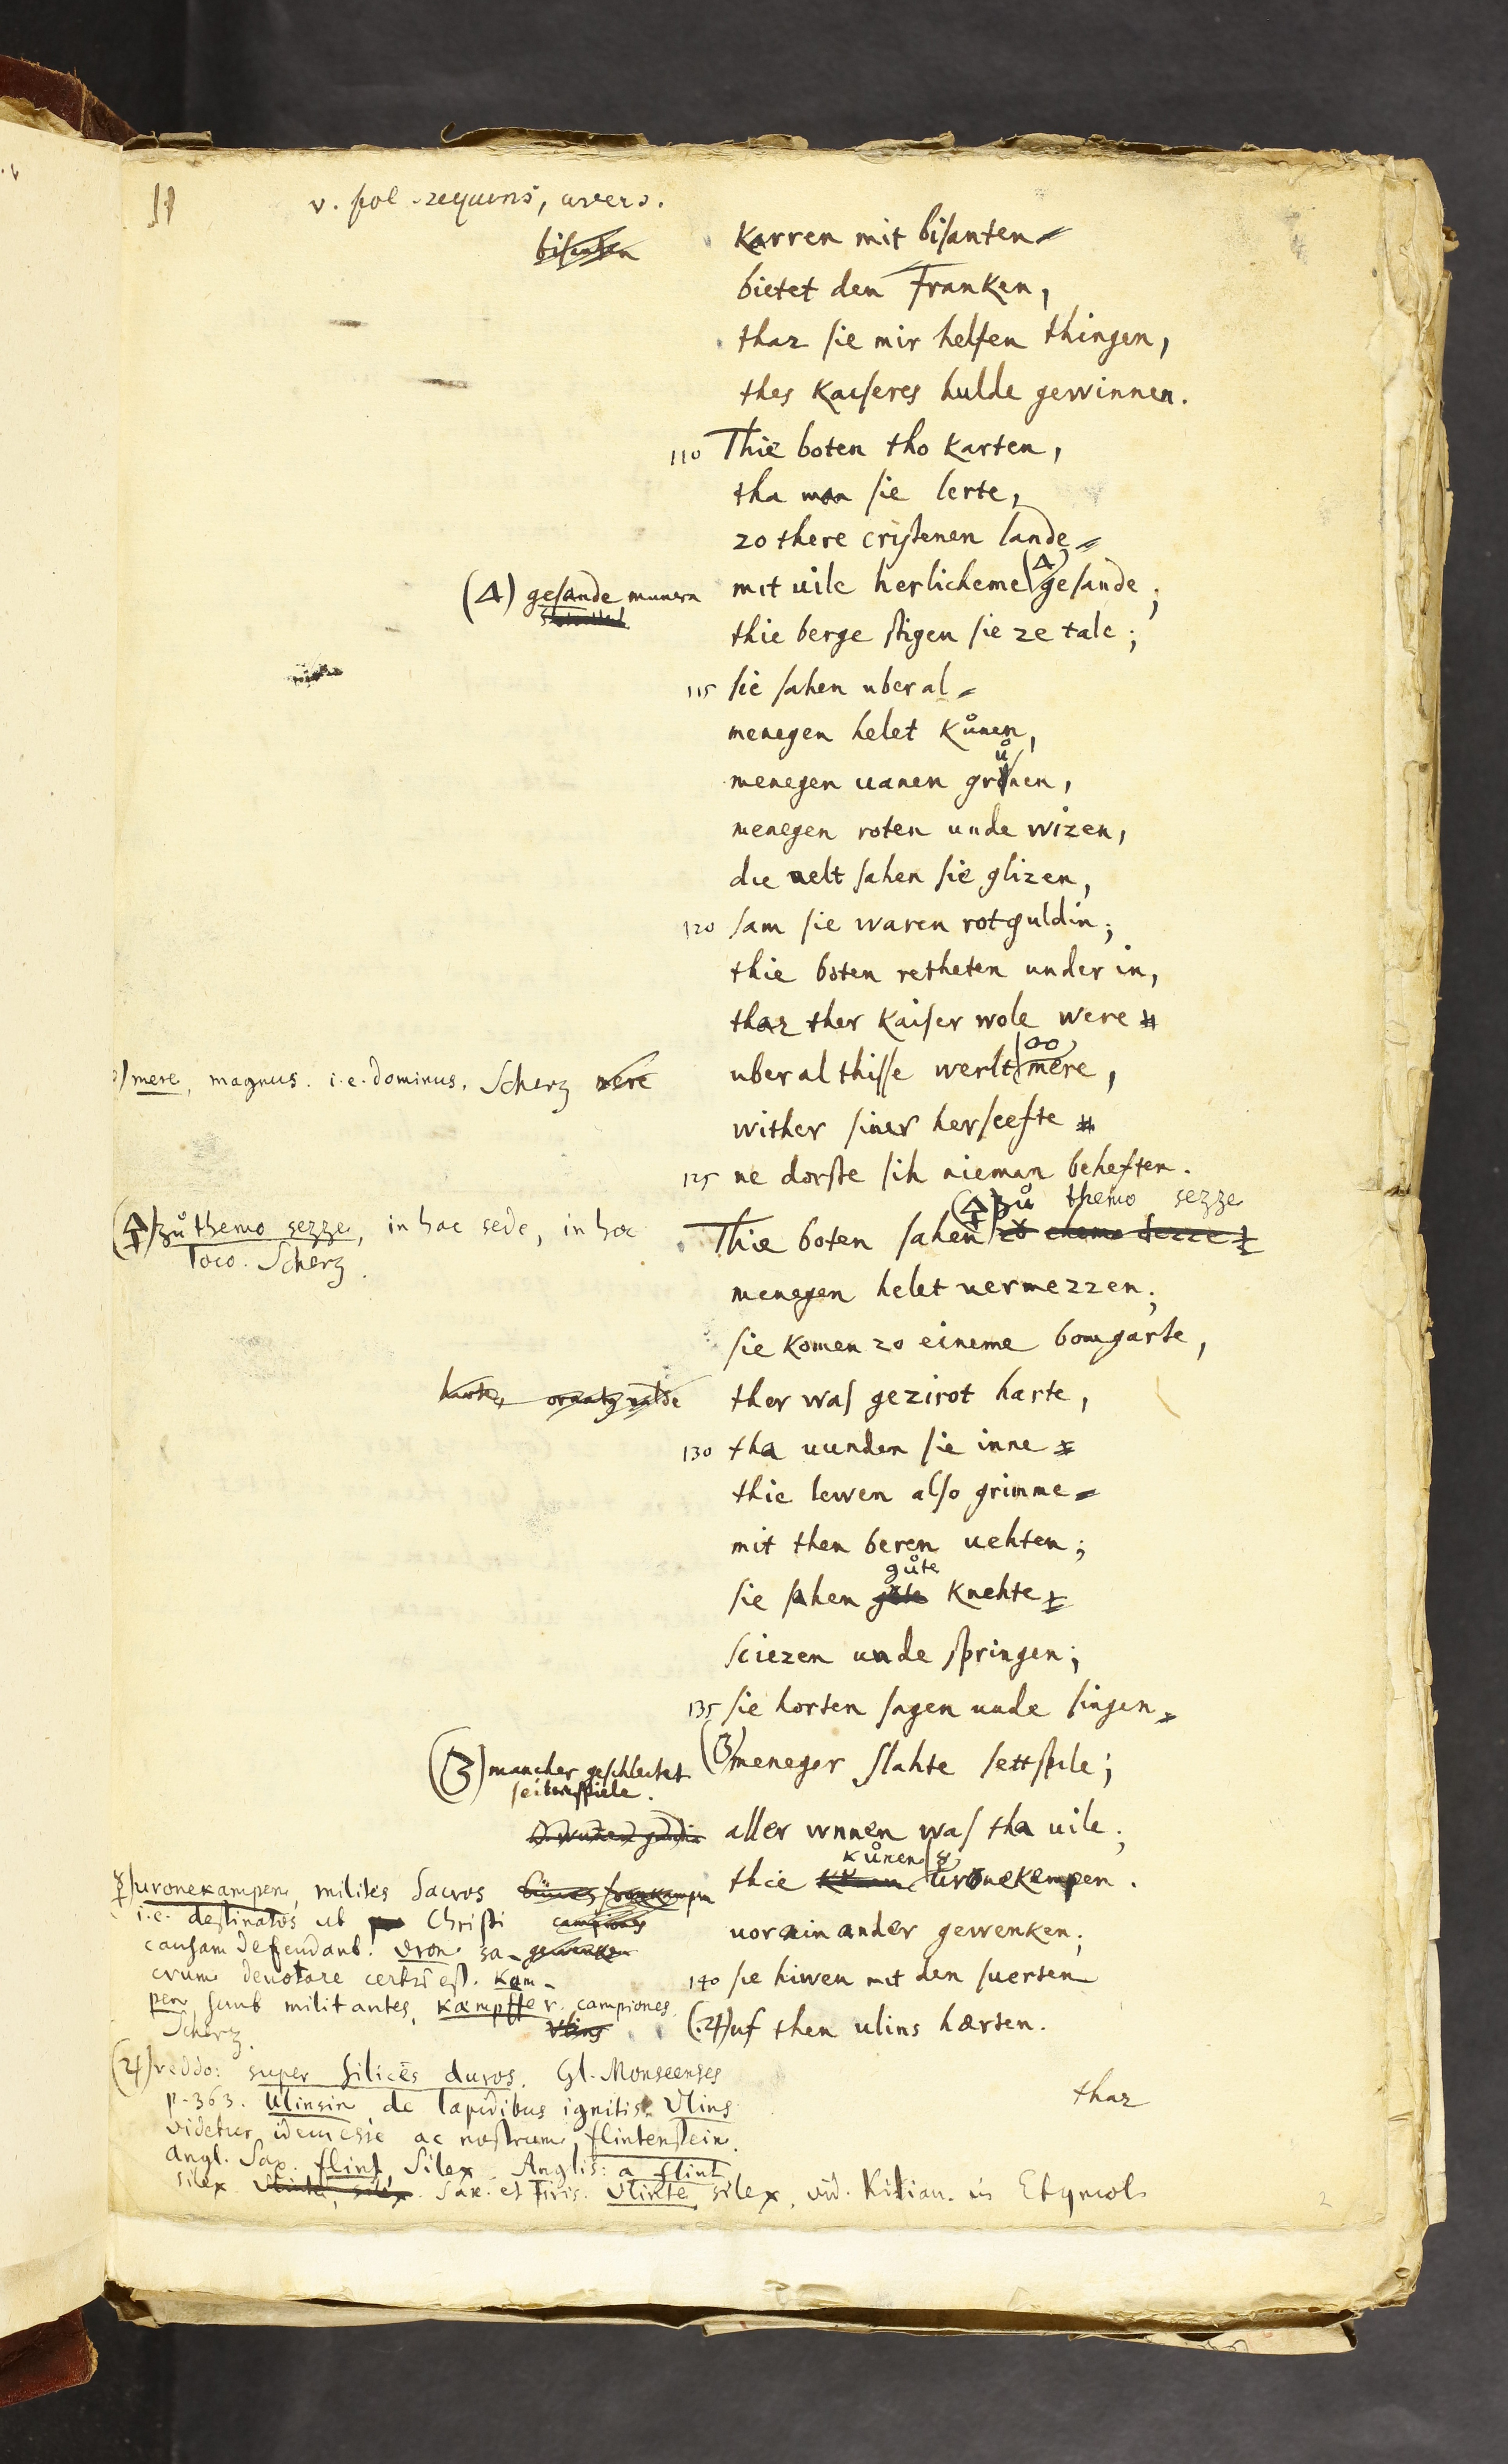 v. fol. sequens, avers.
Karren mit biſanten
bietet den Franken,
thaz ſie mir helfen thingen,
thes Kaiſeres hulde gewinnen.
110 Thie boten tho Karten,
tha man ſie lerte,
zo there criſtenen lande
(Δ) geſande munera
mit uile herlicheme (Δ) geſande;
thie berge ſtigen ſie ze tale;
115 ſie ſahen uberal
menegen helet Kůnen,
ů
menegen uanen gronen,
menegen roten unde wizen,
die uelt ſahen ſie glizen,
120 ſam ſie waren rotguldin;
thie boten retheten under in,
thaz ther Kaiſer wole were
mere, magnus. i.e. dominus. Scherz nere
uber al thiſſe werlt (∞) mere,
wither ſiner herſcefte
125 ne dorſte ſih nieman beheften.
zů themo sezze
zů themo sezze, in hac sede, in hoc
loco. Scherz.
Thie boten ſahen zo themo sezze
menegen helet uermezzen;
ſie Komen zo eineme bomgarte,
harte, ornatq valde
ther waſ gezirot harte,
130 tha uunden ſie inne
thie lewen alſo grimme
mit then beren uehten;
gůte
ſie ſahen gote Knehte
ſciezen unde ſpringen;
135 ſie horten ſagen unde ſingen
(3) mancher geſchlachtet
ſeitenſpiele.
(3) meneger ſlahte ſettſpile;
aller wnnen waſ tha uile;
kůnen
thie uronekempen.
uronekampen, milites sacros
i.e. destinatos ut Christi campiones
causam defendant. vron sa- gewenken
crum denotare certũ est. kam-
pen sunt militantes, kæmpffer. campiones
Scherz.
uor ein ander gewenken;
140 ſie hiwen mit den ſuerten
vlins
(♃) uf then ulins hærten.
(♃) reddo: super silices duros. Gl. Monseenses
p. 363. Ulinsin de lapidibus ignitis. Vlins
videtur idem esse ac nostrum, flintenstein.
Angl. Sax. flint, silex. Anglis: a flint
silex. Sax. et Fris. vlinte silex. vid. Kilian. in Etymol
thaz
2